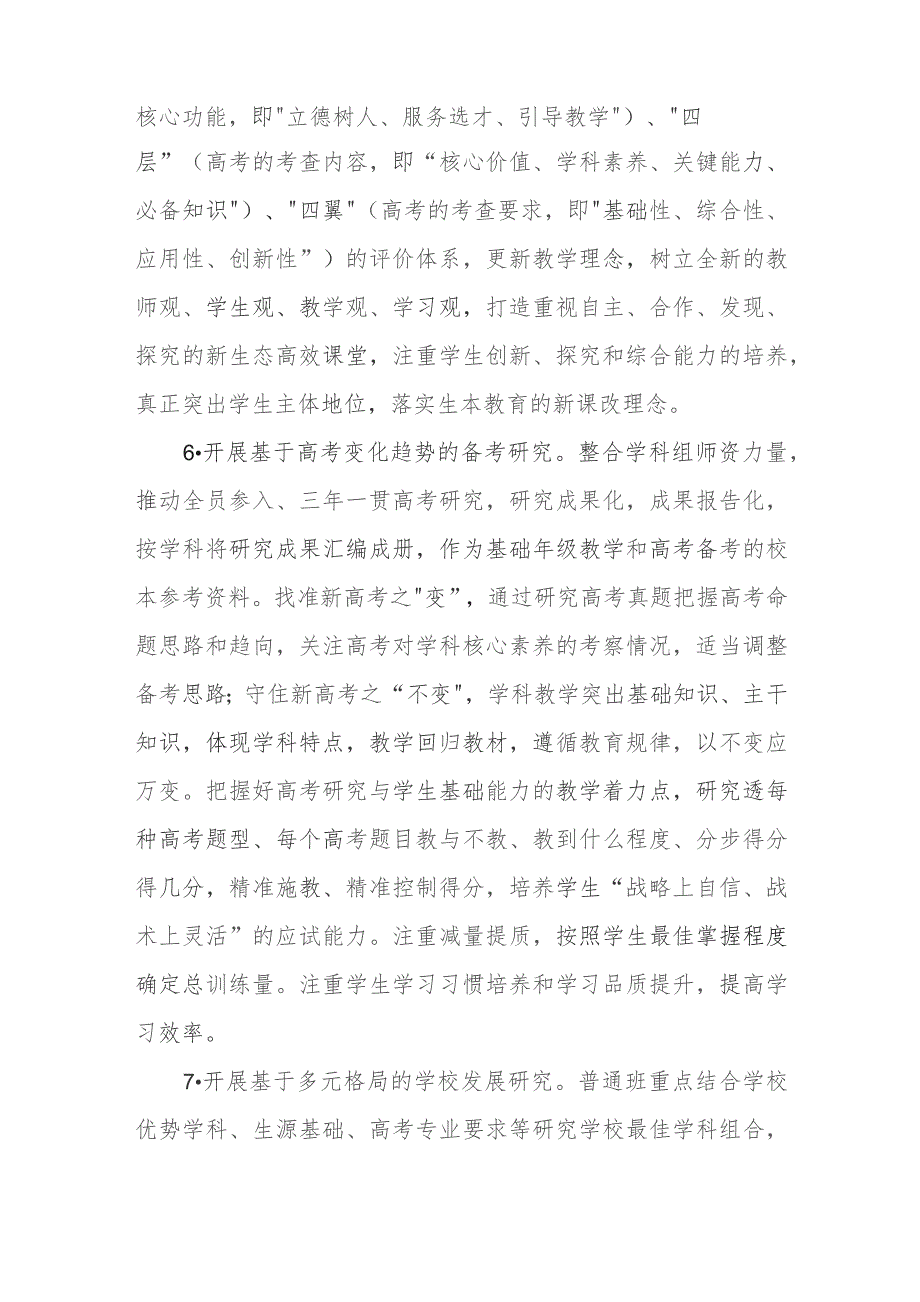 核心功能，即"立德树人、服务选才、引导教学"）、"四
层”（高考的考查内容，即“核心价值、学科素养、关键能力、
必备知识"）、"四翼"（高考的考查要求，即"基础性、综合性、
应用性、创新性”）的评价体系，更新教学理念，树立全新的教
师观、学生观、教学观、学习观，打造重视自主、合作、发现、
探究的新生态高效课堂，注重学生创新、探究和综合能力的培养，
真正突出学生主体地位，落实生本教育的新课改理念。
6•开展基于高考变化趋势的备考研究。整合学科组师资力量，
推动全员参入、三年一贯高考研究，研究成果化，成果报告化，
按学科将研究成果汇编成册，作为基础年级教学和高考备考的校
本参考资料。找准新高考之"变”，通过研究高考真题把握高考命
题思路和趋向，关注高考对学科核心素养的考察情况，适当调整
备考思路；守住新高考之“不变"，学科教学突出基础知识、主干
知识，体现学科特点，教学回归教材，遵循教育规律，以不变应
万变。把握好高考研究与学生基础能力的教学着力点，研究透每
种高考题型、每个高考题目教与不教、教到什么程度、分步得分
得几分，精准施教、精准控制得分，培养学生“战略上自信、战
术上灵活”的应试能力。注重减量提质，按照学生最佳掌握程度
确定总训练量。注重学生学习习惯培养和学习品质提升，提高学
习效率。
7•开展基于多元格局的学校发展研究。普通班重点结合学校
优势学科、生源基础、高考专业要求等研究学校最佳学科组合，